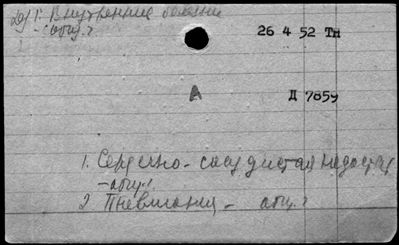 1. Внутренние болезни
- общ.?
26 4 52 Тн
А
Д 7859
1. Сердечно-сосудистая недостат
- общ.?
2 Пневмония - общ.?